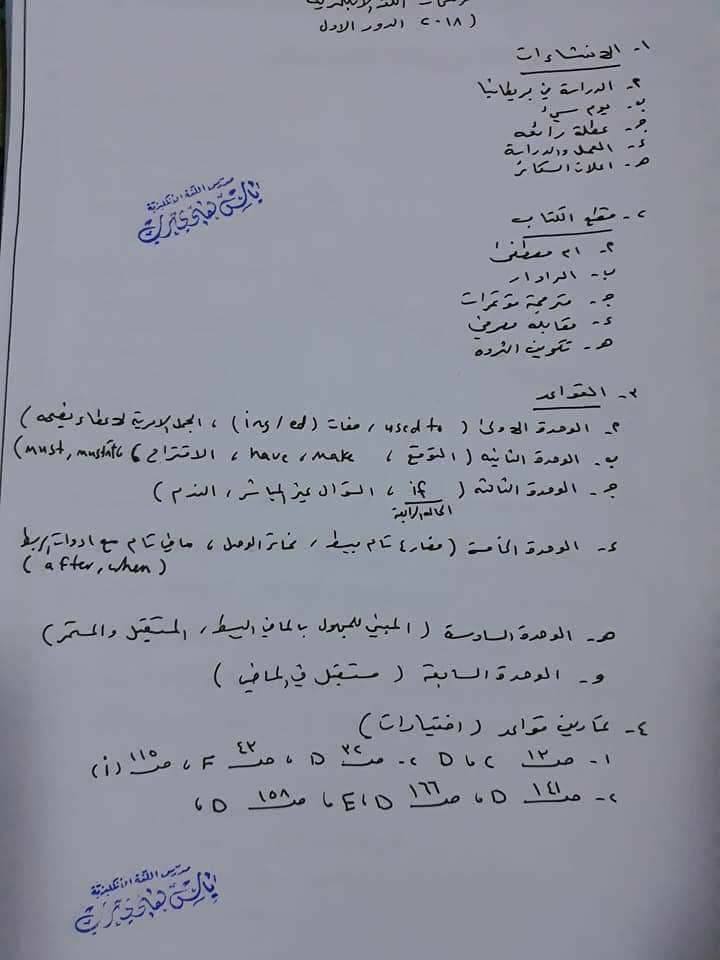 اللغة الانكليزية
(٢٠١٨ الدور الاول
١- الانشاءات
٢- الدراسة في بريطانيا
ب- يوم سيء
ج- عطلة رائعه
ء- العمل والدراسة
هـ- اعلان السكائر
مدرس اللغة الانكليزية
٢- مقطع الكتاب
٢- ام مصطفى
ب- الرادار
ج- مترجمة مؤتمرات
ء- مقابلة مصرفي
هـ- تكوين الثروه
٣- القواعد
٢- الوحدة الاولى (used to ، صفات (ing/ed) ، الجمل الامرية لاعطاء نصيحه)
ب- الوحدة الثانيه (التوقع ، have, make ، الاقتراح ، must, mustn't)
ج- الوحدة الثالثة (if ، السؤال غير المباشر ، الندم)
الحالة
ء- الوحدة الخامسة (مضارع تام بسيط ، ضمائر الوصل ، ماضي تام مع ادوات الربط
(after, when)
هـ- الوحدة السادسة (المبني للمجهول بالماضي البسيط ، المستقبل والمستمر)
و- الوحدة السابعة (مستقبل في الماضي)
٤- تمارين قواعد (اختيارات)
١- ص١٣ C ، D ٢- ص٣٢ D ، ص٤٣ F ، ص١١٥ (i)
٢- ص١٤١ D ، ص١٦٦ D ، E ، ص١٥٨ D ،
مدرس اللغة الانكليزية